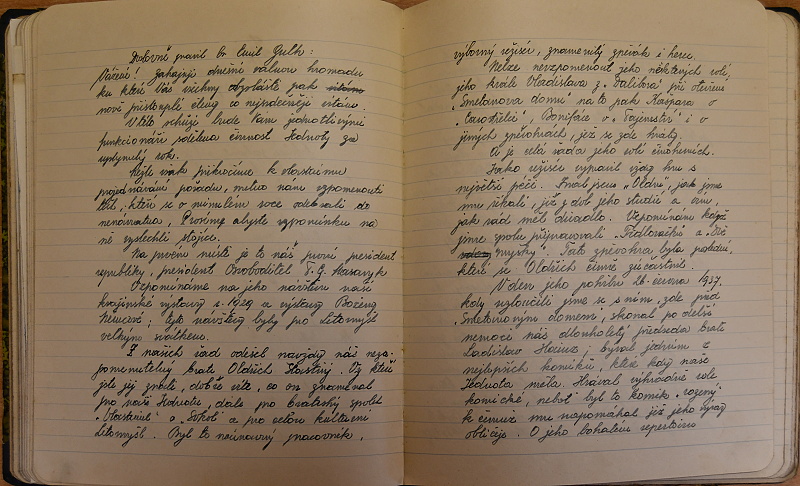 Doslovně pravil br. Emil Gulk:
Vážení! Zahajuji dnešní valnou hromadu
ku které Vás všechny obzvláště pak
nově přistouplé členy co nejsrdečněji vítám.
V této schůzi bude Vám jednotlivými
funkcionáři sdělena činnost Jednoty za
uplynulý rok.
Nežli však přikročíme k vlastnímu
projednávání pořadu, nutno nám vzpomenouti
těch, kteří se v minulém roce odebrali do
nenávratna. Prosíme abyste vzpomínku na
ně vyslechli stojíce.
Na prvém místě je to náš první president
republiky, president Osvoboditel T. G. Masaryk
Vzpomínáme na jeho návštěvu naší
krajinské výstavy r. 1929 a výstavy Boženy
Němcové; tyto návštěvy byly pro Litomyšl
velkým svátkem.
Z našich řad odešel navždy náš neza-
pomenutelný bratr Oldřich Šťastný. Vy kteří
jste jej znali, dobře víte, co on znamenal
pro naši Jednotu, dále pro bratrský spolek
"Vlastimil" a "Sokol" a pro celou kulturní
Litomyšl. Byl to neúnavný pracovník,
výborný režisér, znamenitý zpěvák i herec.
Nelze nevzpomenout jeho některých rolí,
jeho krále Vladislava z "Dalibora" při otevření
"Smetanova domu" na to pak Kaspara v
"Čarostřelci", Bonifáce v "Tajemství" i v
jiných zpěvohrách, jež se zde hrály.
Či je celá řada jeho rolí činoherních.
Jako režisér vypravil vždy hru s
největší péčí. Znal jsem "Oldru", jak jsme
mu říkali, již z dob jeho studií a vím,
jak rád měl divadlo. Vzpomínám když
jsme spolu připravovali "Podloudníky" a "Dvě
myšky". Tato zpěvohra byla poslední,
které se Oldřich činně zúčastnil.
V den jeho pohřbu 26. února 1937.
kdy vyloučili jsme se s ním, zde před
"Smetanovým domem", skonal po delší
nemoci náš dlouholetý předseda bratr
Ladislav ; býval jedním z
nejlepších komiků, které kdy naše
Jednota měla. Hrával výhradně role
komické, neboť byl to komik "rozený"
k čemuž mu napomáhal již jeho výraz
obličeje. O jeho bohatém repertoiru